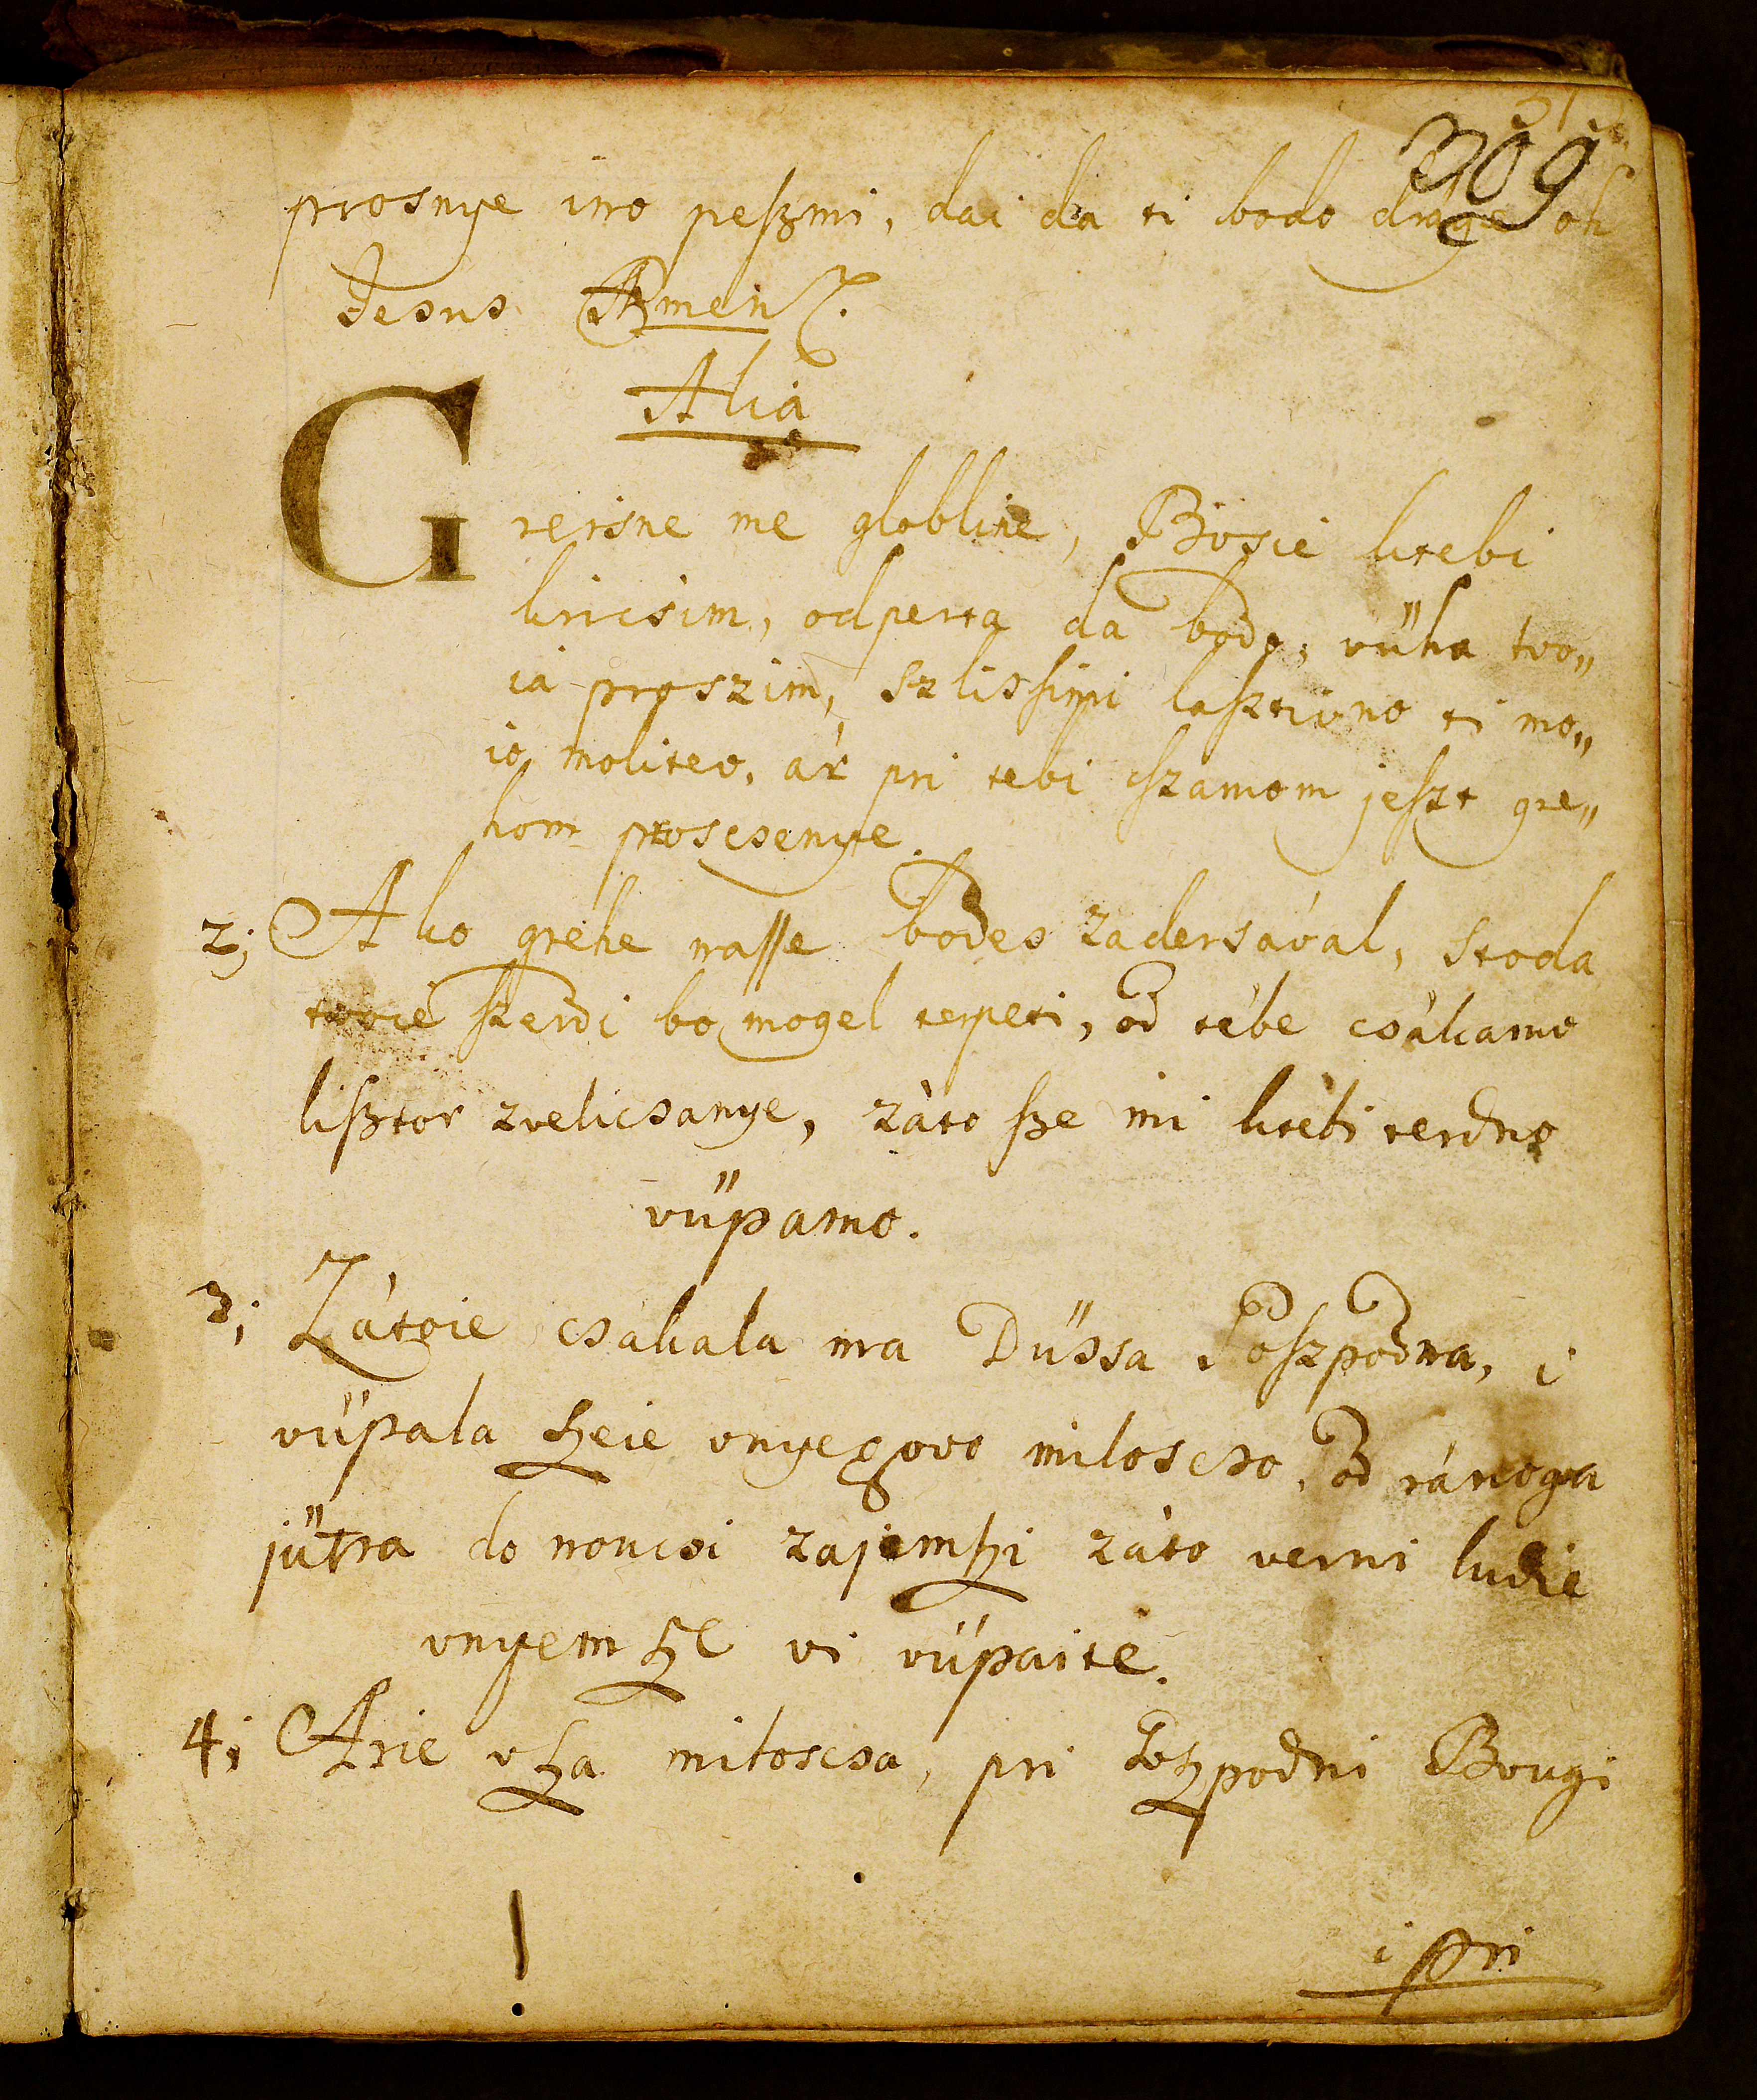 309
prosnye ino peſzmi, dai da ti bodo drage oh
Jesus Amen.
Alia
Greisne me globline, Bosie ktebi
kricsim, odperta da bodo, vűha tvo„
ia proszim, Szlissimi laſztivno ti mo„
io molitvo, ár pri tebi ſzamom jeſzt gre„
hom proscsenye.
2; Ako grehe naſſe bodes zadersával, stoda
tvoie ſzerdi bo mogel terpeti, od tébe csákamo
liſztor zvelicsanye, záto ſze mi ktébi terdno
vűpamo.
3; Zátoie csákala ma Dűssa Goſzpodna, i
vűpala ſzeie vnyegovo miloscso, od ránoga
jűtra do noucsi zajemſzi záto verni ludie
vnyem ſze vi vűpaite.
4; Arie vſza miloscsa, pri Goſzpodni Bougi
i pri